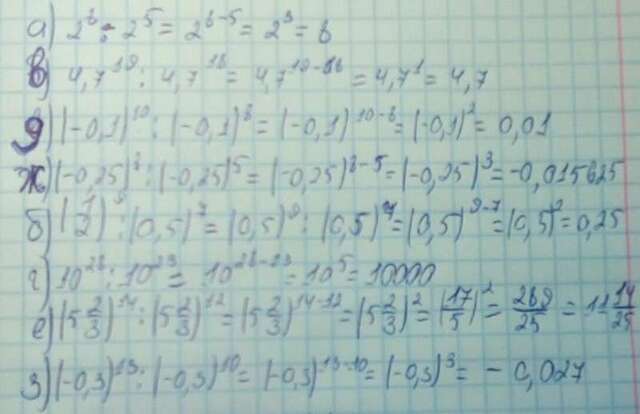 а) 2⁸ : 2⁵ = 2⁸⁻⁵ = 2³ = 8
в) 4,7¹⁹ : 4,7¹⁸ = 4,7¹⁹⁻¹⁸ = 4,7¹ = 4,7
д) (-0,1)¹⁰ : (-0,1)⁸ = (-0,1)¹⁰⁻⁸ = (-0,1)² = 0,01
ж) (-0,25)⁸ : (-0,25)⁵ = (-0,25)⁸⁻⁵ = (-0,25)³ = -0,015625
б) (1/2)⁹ : (0,5)⁷ = (0,5)⁹ : (0,5)⁷ = (0,5)⁹⁻⁷ = (0,5)² = 0,25
г) 10²⁸ : 10²³ = 10²⁸⁻²³ = 10⁵ = 10000
е) (5 2/3)¹⁴ : (5 2/3)¹² = (5 2/3)¹⁴⁻¹² = (5 2/3)² = (17/5)² = 289/25 = 11 14/25
з) (-0,3)¹³ : (-0,3)¹⁰ = (-0,3)¹³⁻¹⁰ = (-0,3)³ = - 0,027